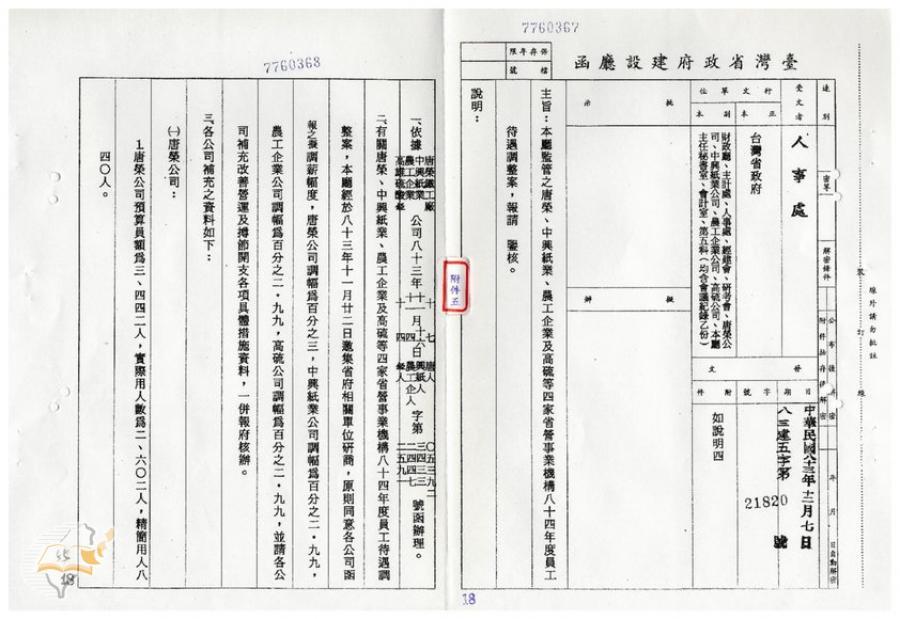 7760367
臺灣省政府建設廳函
保存年限
檔號
速別
密等
解密條件
公布後解密
附件抽存後解密
年 月 日自動解密
受文者
人事處
行文單位
正本
台灣省政府
副本
財政廳、主計處、人事處、經建會、研考會、唐榮公
司、中興紙業公司、農工企業公司、高硫公司、本廳
主任秘書室、會計室、第五科(均含會議紀錄乙份)
發文
日期
中華民國八十三年十二月七日
字號
八三建五字第
21820
號
附件
如說明四
批示
擬辦
主旨：本廳監管之唐榮、中興紙業、農工企業及高硫等四家省營事業機構八十四年度員工
待遇調整案，報請 鑒核。
說明：
裝
訂
線
線外請勿批註
附件五
18
7760368
一、依據
唐榮鐵工廠
中興紙業
農工企業
高雄硫酸錏
公司八十三年
月
日
字第
〇五三九二
三四三三
二四四七
二五九一
號函辦理。
二、有關唐榮、中興紙業、農工企業及高硫等四家省營事業機構八十四年度員工待遇調
整案，本廳經於八十三年十一月廿二日邀集省府相關單位研商，原則同意各公司函
報之擬調薪幅度，唐榮公司調幅為百分之三，中興紙業公司調幅為百分之二．九九，
農工企業公司調幅為百分之二．九九，高硫公司調幅為百分之二．九九，並請各公
司補充改善營運及撙節開支各項具體措施資料，一併報府核辦。
三、各公司補充之資料如下：
㈠唐榮公司：
1.唐榮公司預算員額為三、四四二人，實際用人數為二、六〇二人，精簡用人八
四〇人。
18